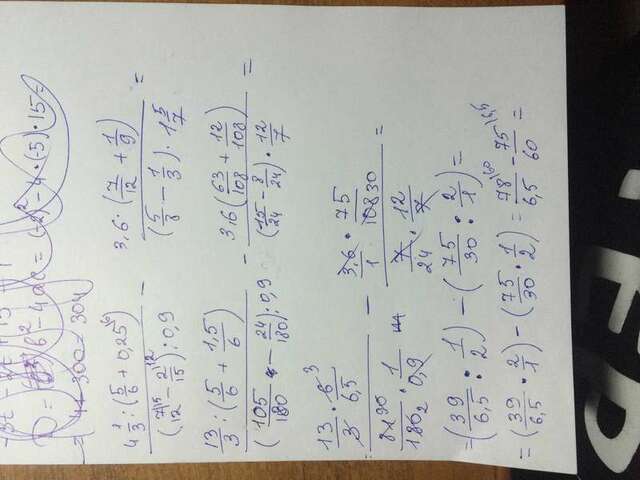 D = b² - 4ac = (-2)² - 4·(-5)·15 =
= 4 + 300 = 304
4 1/3 : (5/6 + 0,25\6) / (7/12\15 - 2/15\12) : 0,9 - 3,6 · (7/12 + 1/9) / (5/8 - 1/3) · 1 5/7 =
13/3 : (5/6 + 1,5/6) / (105/180 - 24/180) : 0,9 - 3,6 (63/108 + 12/108) / (15/24 - 8/24) · 12/7 =
= 13/3 · 6 3/6,5 / 81 90/180 2 · 1/0,9 - 3,6/1 · 75/108 30 / 7/24 · 12/7 =
= (39/6,5 : 1/2) - (75/30 : 2/1) =
= (39/6,5 · 2/1) - (75/30 · 1/2) = 78\60/6,5 - 75\6,5/60 =